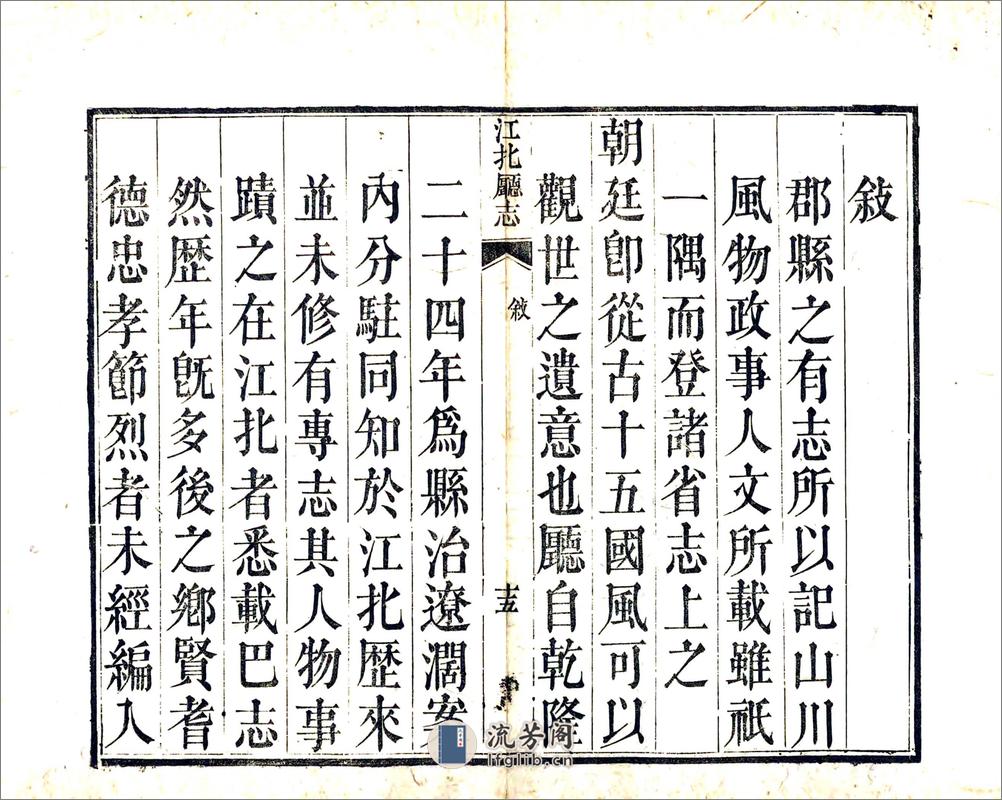 敍
郡縣之有志所以記山川
風物政事人文所載雖祇
一隅而登諸省志上之
朝廷卽從古十五國風可以
觀世之遺意也廳自乾隆
江北廳志
敍
十五
二十四年爲縣治遼濶安
內分駐同知於江北歷來
並未修有專志其人物事
蹟之在江北者悉載巴志
然歷年旣多後之鄉賢耆
德忠孝節烈者未經編入
流芳阁
lfglib.cn